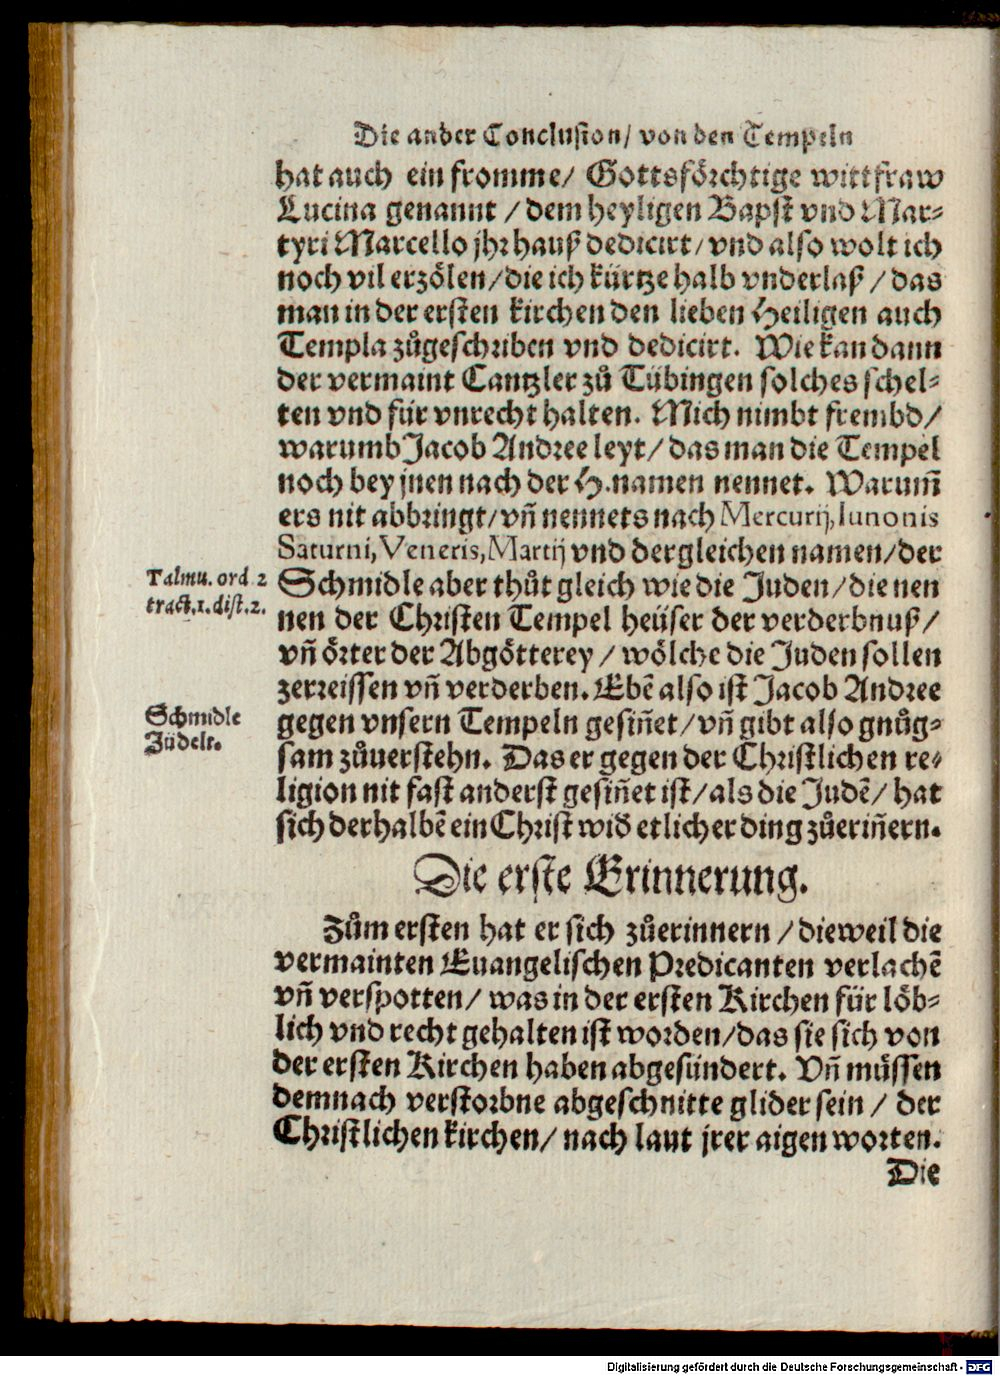 Die ander Conclusion/ von den Tempeln
hat auch ein fromme/ Gottsförchtige wittfraw
Lucina genannt / dem heyligen Bapst vnd Mar-
tyri Marcello jhr hauß dedicirt/ vnd also wolt ich
noch vil erzölen/ die ich kürtze halb vnderlaß / das
man in der ersten kirchen den lieben Heiligen auch
Templa zůgeschriben vnd dedicirt. Wie kan dann
der vermaint Cantzler zů Tübingen solches schel-
ten vnd für vnrecht halten. Mich nimbt frembd/
warumb Jacob Andree leyt/ das man die Tempel
noch bey jnen nach der H. namen nennet. Warum̃
ers nit abbringt/ vñ nennets nach Mercurij, Iunonis
Saturni, Veneris, Martij vnd dergleichen namen/ der
Talmu. ord. 2
tract. 1. dist. 2.
Schmidle aber thůt gleich wie die Juden/ die nen
nen der Christen Tempel heüser der verderbnuß/
vñ örter der Abgötterey / wölche die Juden sollen
zerreissen vñ verderben. Ebē also ist Jacob Andree
Schmidle
Jüdelt.
gegen vnsern Tempeln gesiñet/ vñ gibt also gnůg-
sam zůuerstehn. Das er gegen der Christlichen re-
ligion nit fast anderst gesiñet ist/ als die Judē/ hat
sich derhalbē ein Christ wiď etlicher ding zůeriñern.
Die erste Erinnerung.
Zům ersten hat er sich zůerinnern / dieweil die
vermainten Euangelischen Predicanten verlachē
vñ verspotten/ was in der ersten Kirchen für löb-
lich vnd recht gehalten ist worden/ das sie sich von
der ersten Kirchen haben abgesündert. Vñ müssen
demnach verstorbne abgeschnitte glider sein / der
Christlichen kirchen/ nach laut jrer aigen worten.
Die
Digitalisierung gefördert durch die Deutsche Forschungsgemeinschaft - DFG